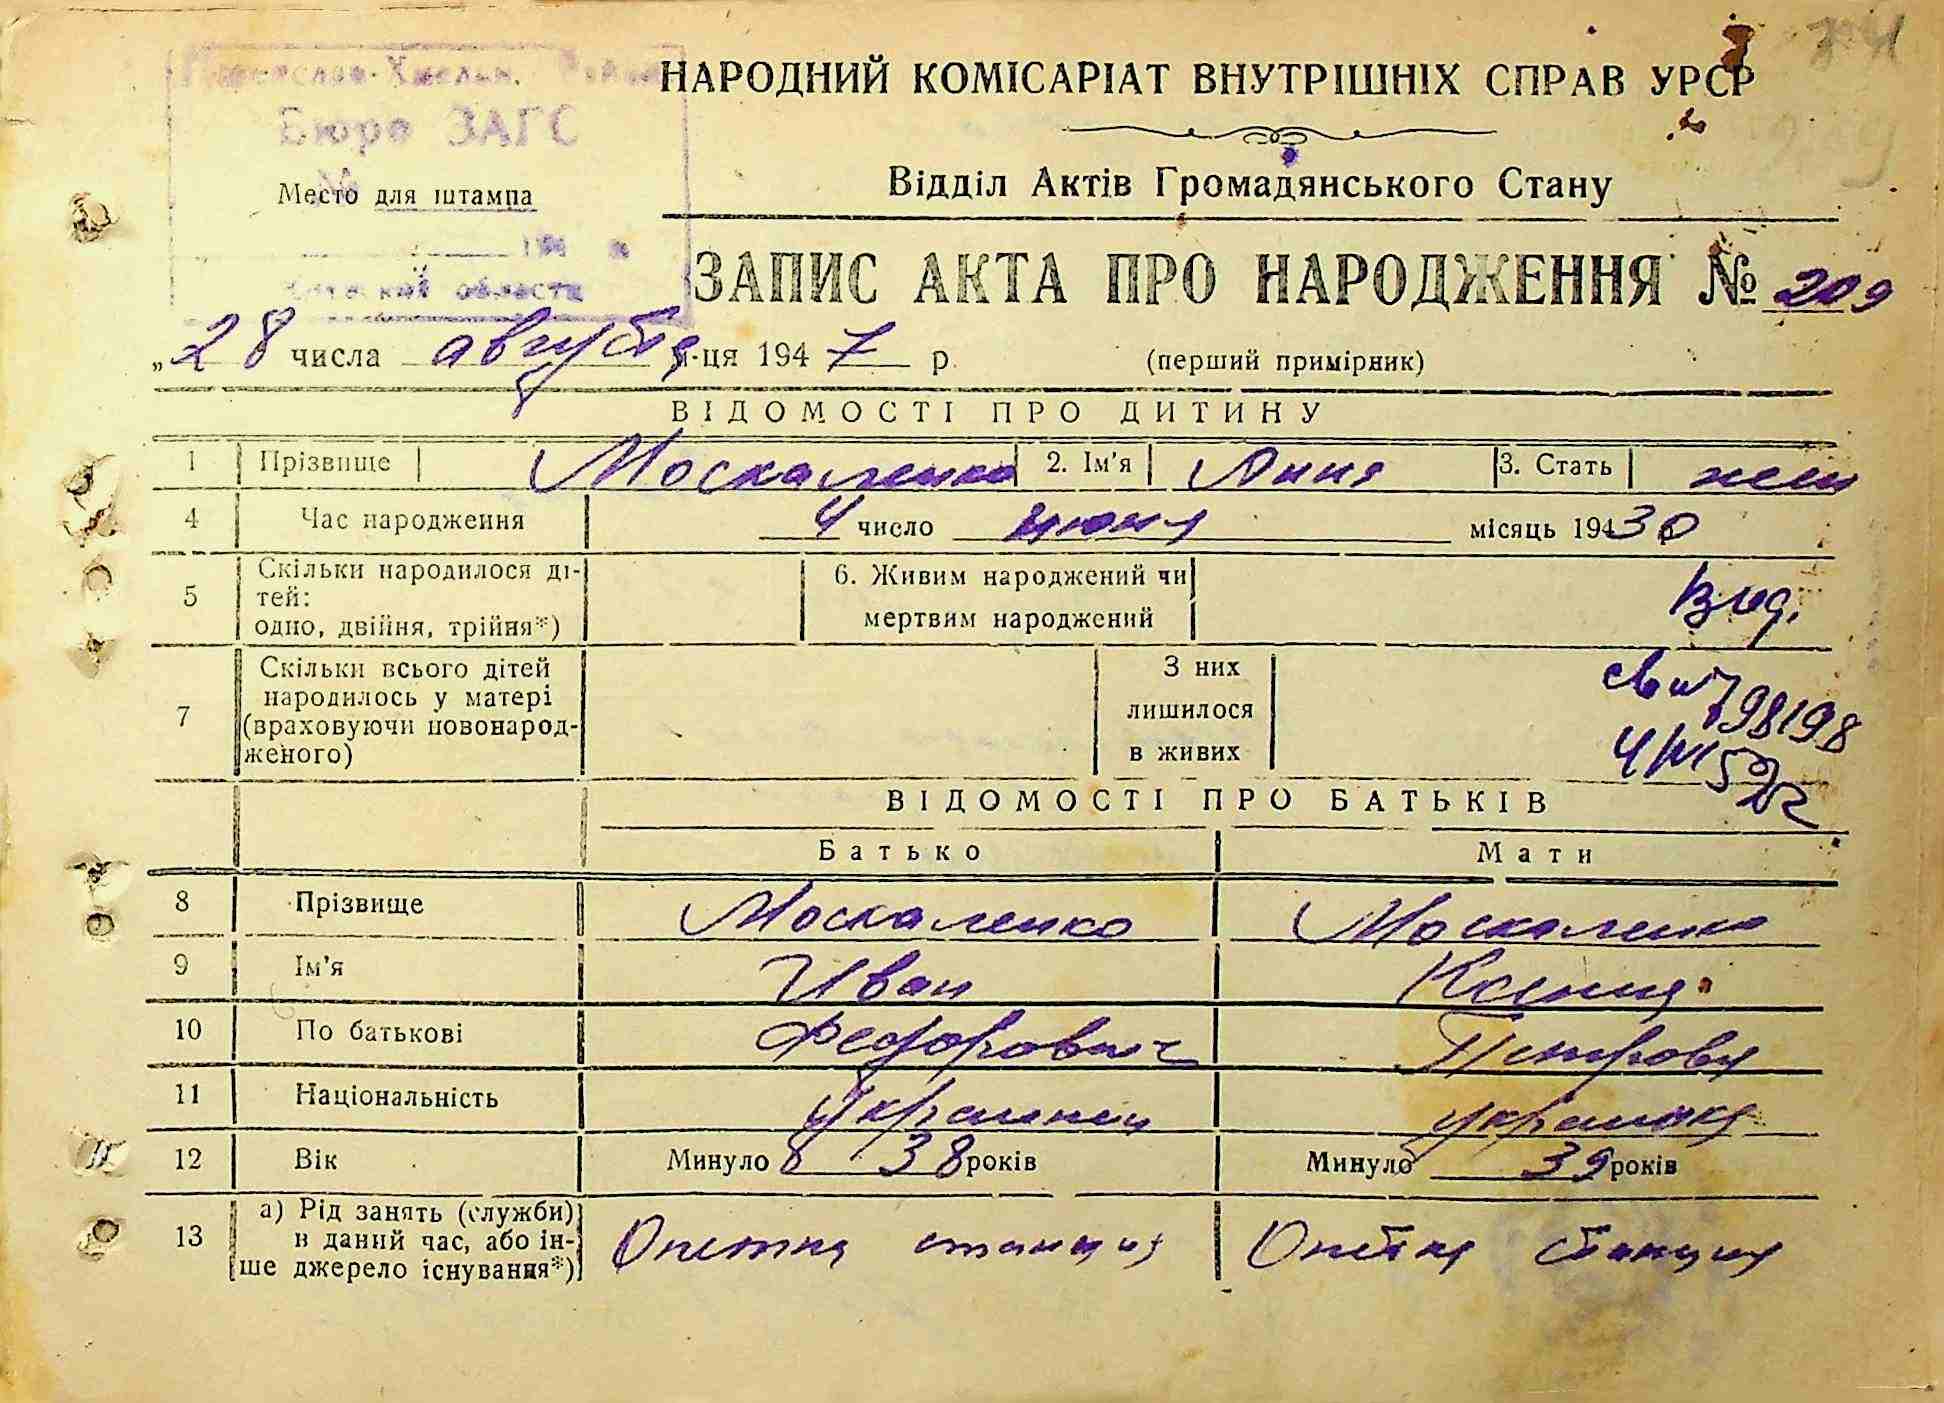 НАРОДНИЙ КОМІСАРІАТ ВНУТРІШНІХ СПРАВ УРСР
Бюро ЗАГС
Место для штампа
области
Відділ Актів Громадянського Стану
ЗАПИС АКТА ПРО НАРОДЖЕННЯ № 209
„28 числа августа м-ця 1947 р. (перший примірник)
ВІДОМОСТІ ПРО ДИТИНУ
1 Прізвище Москаленко 2. Ім'я Анна 3. Стать жен
4 Час народження 4 число июня місяць 19430
5 Скільки народилося ді-
тей:
одно, двійня, трійня*)
6. Живим народжений чи
мертвим народжений
7 Скільки всього дітей
народилось у матері
(враховуючи новонарод-
женого)
З них
лишилося
в живих
ВІДОМОСТІ ПРО БАТЬКІВ
Батько Мати
8 Прізвище Москаленко Москаленко
9 Ім'я Иван Ксения
10 По батькові Федорович Петровна
11 Національність Украинец украинка
12 Вік Минуло 38 років Минуло 39 років
13 а) Рід занять (служби)
в даний час, або ін-
ше джерело існування*)
Опытна станция Опытна станция